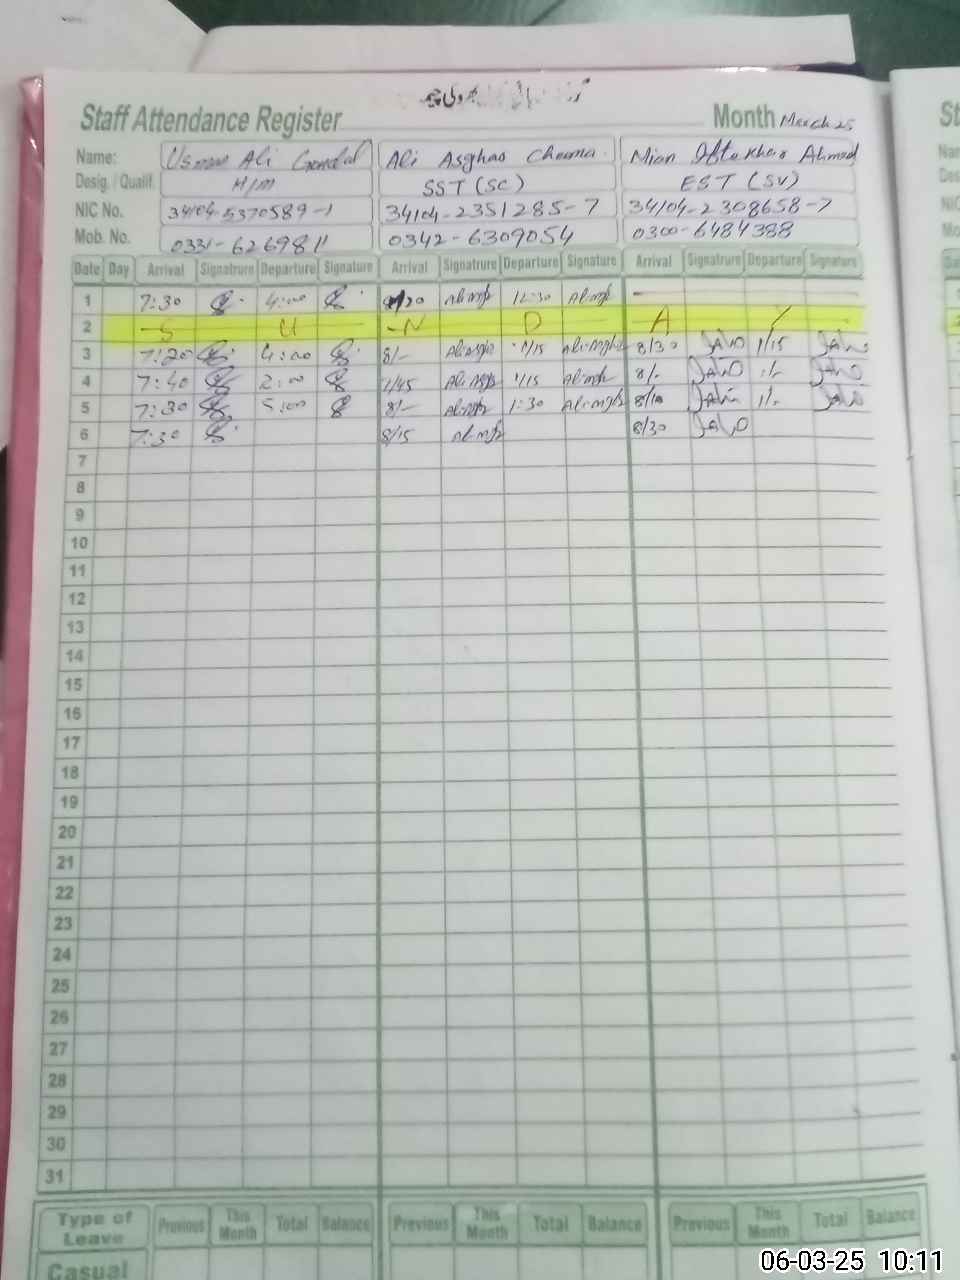 Staff Attendance Register Month March 25
Name: Usman Ali Gondal Ali Asghar Cheema Mian Iftekhar Ahmad
Desig. / Qualif. H/M SST (SC) EST (SV)
NIC No. 34104-5370589-1 34104-2351285-7 34104-2308658-7
Mob. No. 0331-6269811 0342-6309054 0300-6484388
Date Day Arrival Signatrure Departure Signature Arrival Signatrure Departure Signature Arrival Signatrure Departure Signature
1 7:30 4:00 12:30 —
2 S U N D A Y
3 7:20 4:00 8/- 1/15 8/30 1/15
4 7:40 2:00 7/45 1/15 8/- 1/-
5 7:30 5:00 8/- 1:30 8/10 1/-
6 7:30 8/15 8/30
7
8
9
10
11
12
13
14
15
16
17
18
19
20
21
22
23
24
25
26
27
28
29
30
31
Type of Leave Previous This Month Total Balance Previous This Month Total Balance Previous This Month Total Balance
Casual
06-03-25 10:11